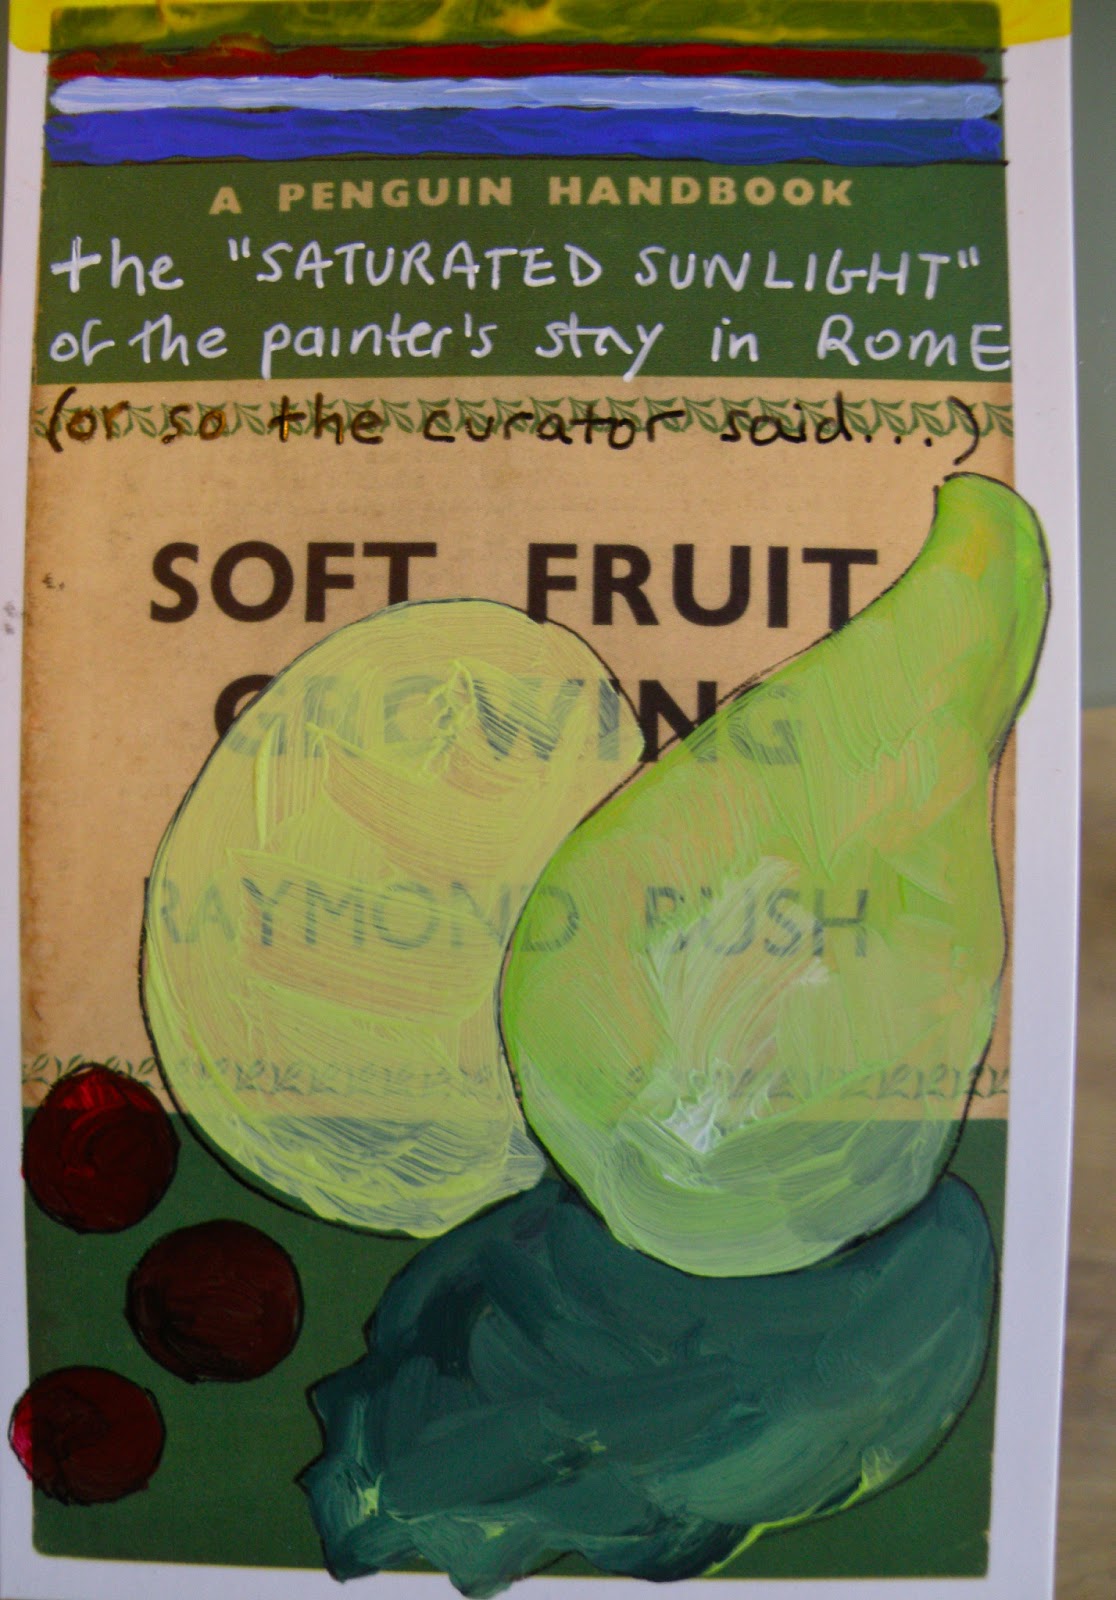 A PENGUIN HANDBOOK
the "SATURATED SUNLIGHT"
of the painter's stay in RomE
(or so the curator said...)
SOFT FRUIT
GROWING
RAYMOND BUSH